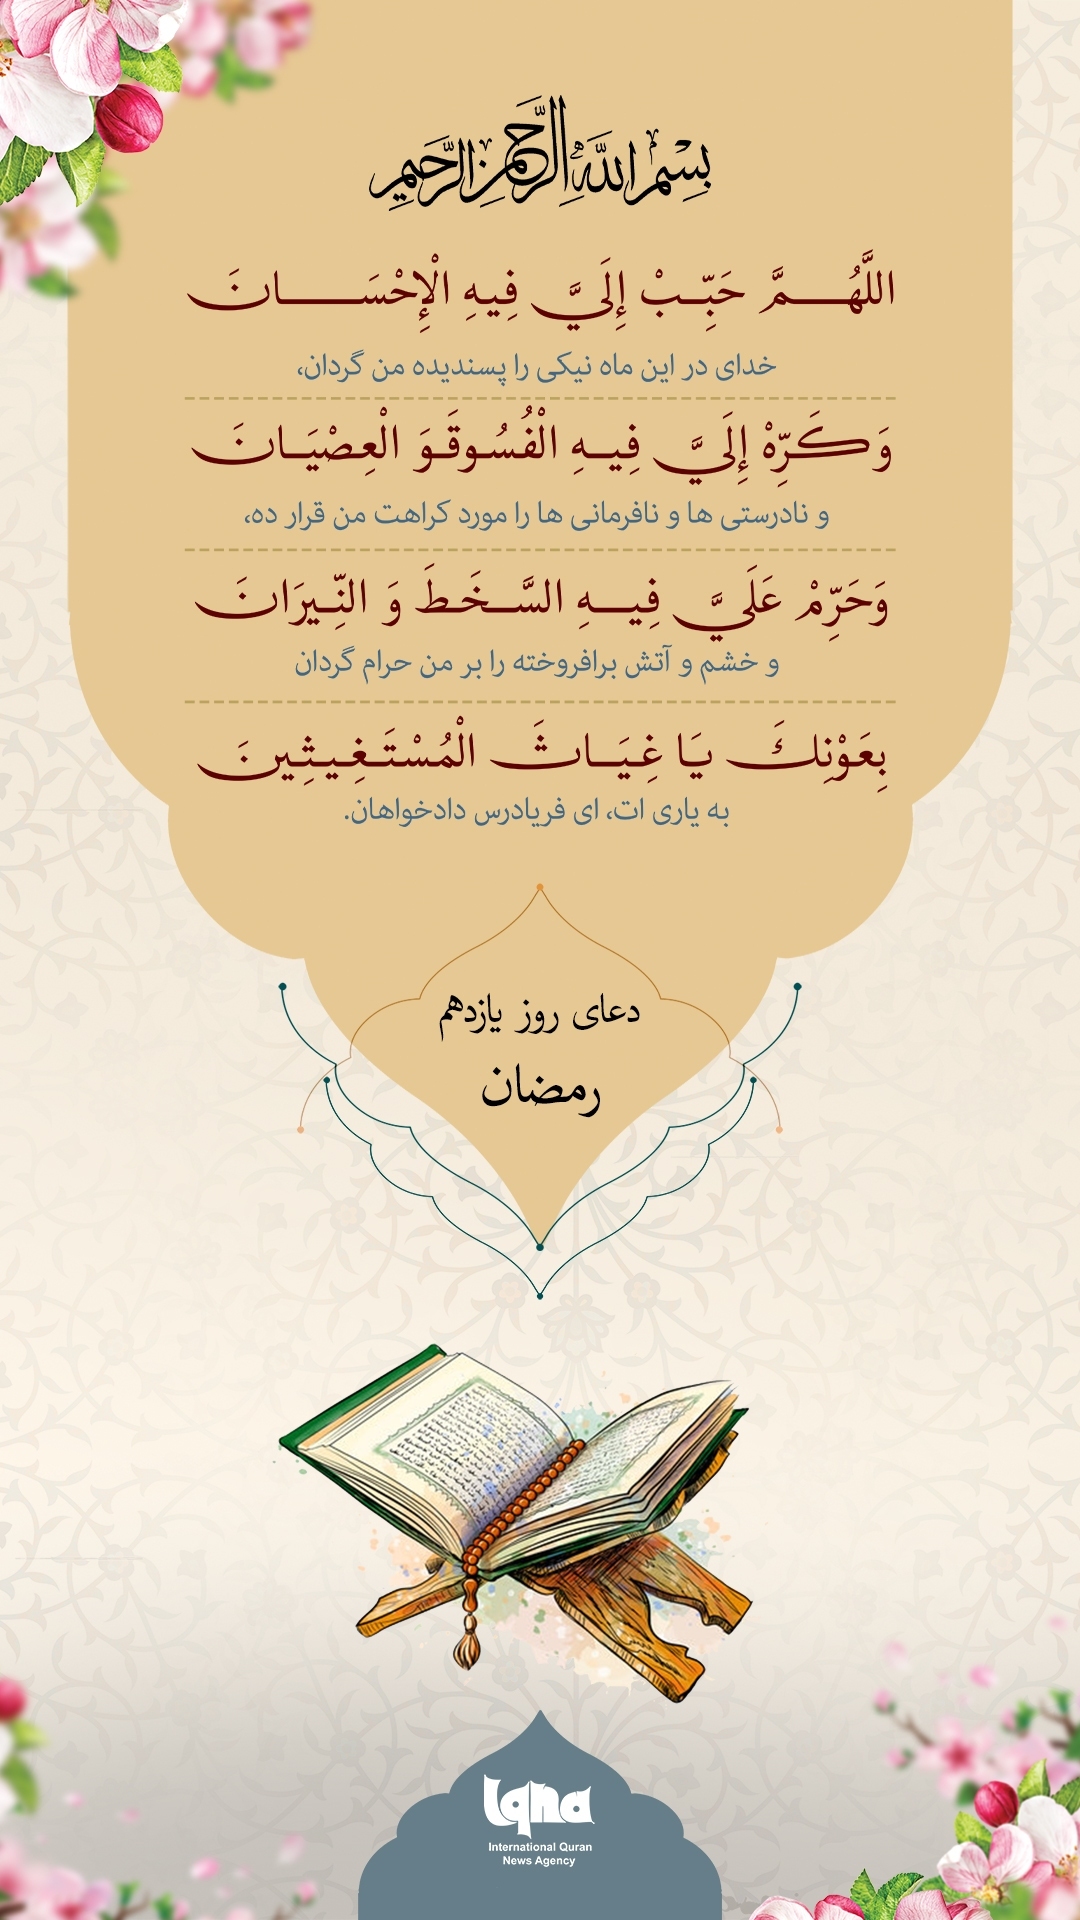 بِسْمِ اللَّهِ الرَّحْمٰنِ الرَّحِيمِ
اللَّهُمَّ حَبِّبْ إِلَيَّ فِيهِ الْإِحْسَانَ
خدای در این ماه نیکی را پسندیده من گردان،
وَكَرِّهْ إِلَيَّ فِيهِ الْفُسُوقَوَ الْعِصْيَانَ
و نادرستی ها و نافرمانی ها را مورد کراهت من قرار ده،
وَحَرِّمْ عَلَيَّ فِيهِ السَّخَطَ وَ النِّيرَانَ
و خشم و آتش برافروخته را بر من حرام گردان
بِعَوْنِكَ يَا غِيَاثَ الْمُسْتَغِيثِينَ
به یاری ات، ای فریادرس دادخواهان.
دعای روز یازدهم
رمضان
Iqna
International Quran
News Agency